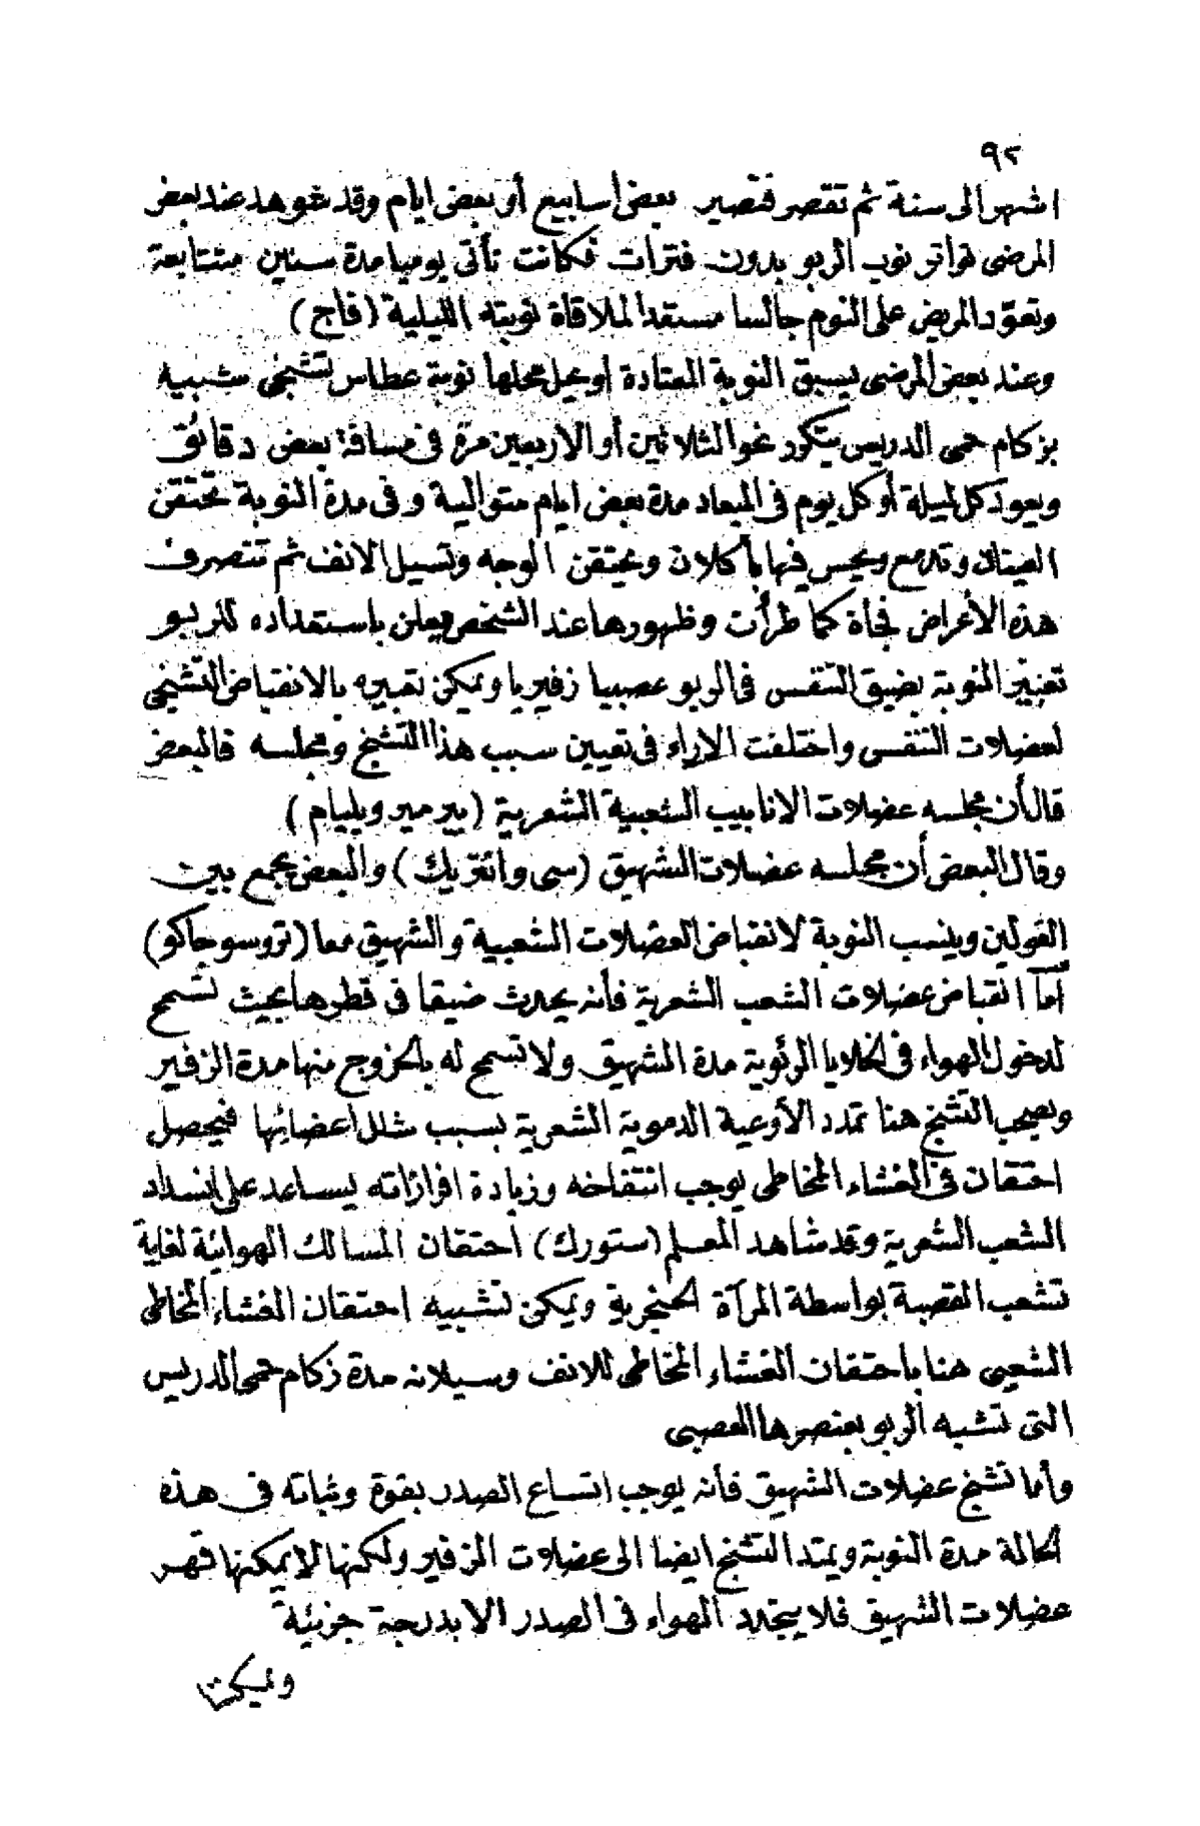 ٩٢
اشهر الى سنة ثم تقصر فتصير بعض اسابيع أو بعض ايام وقد شوهد عند بعض
المرضى تواتر نوب الربو بدون فترات فكانت تأتى يوميا مدة سنين متتابعة
وتعوّد المريض على النوم جالسا مستعدا لملاقاة نوبته الليلية (فاج)
وعند بعض المرضى يسبق النوبة المعتادة او يحل محلها نوبة عطاس تشنجى شبيه
بزكام حمى الدريس يتكرر نحو الثلاثين أو الاربعين مرة فى مسافة بعض دقائق
ويعود كل ليلة أو كل يوم فى الميعاد مدة بعض ايام متوالية وفى مدة النوبة تحتقن
العينان وتدمع ويحس فيها بأكلان ويحتقن الوجه وتسيل الانف ثم تنصرف
هذه الأعراض فجأة كما طرأت وظهورها عند الشخص يعلن باستعداده للربو
تتميز النوبة بضيق التنفس فى الربو عصبيا زفيريا ويمكن تعبيره بالانقباض التشنجى
لعضلات التنفس واختلفت الاراء فى تعيين سبب هذا التشنج ومجلسه فالبعض
قال أن مجلسه عضلات الانابيب الشعبية الشعرية (بيرمير ويليام)
وقال البعض أن مجلسه عضلات الشهيق (سى وانتريك) والبعض يجمع بين
القولين وينسب النوبة لانقباض العضلات الشعبية والشهيق معا (تروسو جاكو)
أما انقباض عضلات الشعب الشعرية فأنه يحدث ضيقا فى قطرها بحيث تسمح
لدخول الهواء فى الخلايا الرئوية مدة الشهيق ولا تسمح له بالخروج منها مدة الزفير
ويصحب التشنج هنا تمدد الأوعية الدموية الشعرية بسبب شلل اعضائها فيحصل
احتقان فى الغشاء المخاطى يوجب انتفاخه وزيادة افرازاته يساعد على انسداد
الشعب الشعرية وقد شاهد المعلم (ستورك) احتقان المسالك الهوائية لغاية
تشعب القصبة بواسطة المرآة الحنجرية ويمكن تشبيه احتقان الغشاء المخاطى
الشعبى هنا باحتقان الغشاء المخاطى للانف وسيلانه مدة زكام حمى الدريس
التى تشبه الربو بعنصرها العصبى
وأما تشنج عضلات الشهيق فأنه يوجب اتساع الصدر بقوة وثباته فى هذه
الحالة مدة النوبة ويمتد التشنج ايضا الى عضلات الزفير ولكنها لا يمكنها قهر
عضلات الشهيق فلا يتجدد الهواء فى الصدر الا بدرجة جزئية
ويمكن